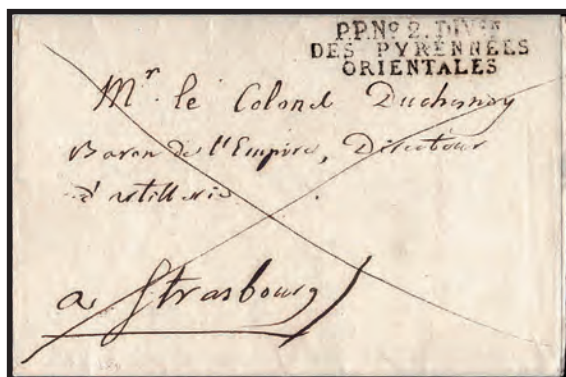 P.P.Nº 2. DIV.ᵒⁿ
DES PYRENNÉES
ORIENTALES
Mr. le Colonel Duchesnoy
Baron de l'Empire, Directeur
d'artillerie
a Strasbourg